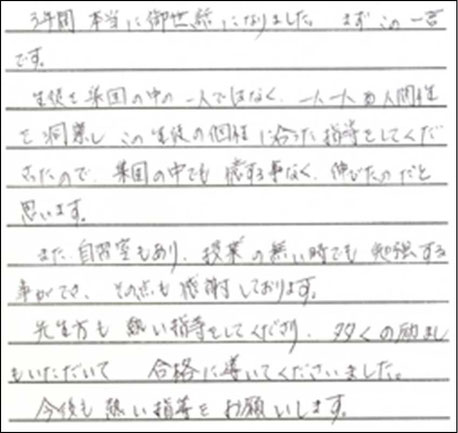 3年間 本当に御世話になりました。 まずこの一言
です。
生徒を集団の中の一人ではなく、一人一人の人間性
を洞察し この生徒の個性に合った指導をしてくだ
さったので、集団の中でも 臆する事なく、伸びたのだと
思います。
また、自習室もあり、授業の無い時でも 勉強する
事ができ、その点も感謝しております。
先生方も 熱い指導をしてくださり、多くの励まし
もいただいて 合格に導いてくださいました。
今後も 熱い指導を お願いします。